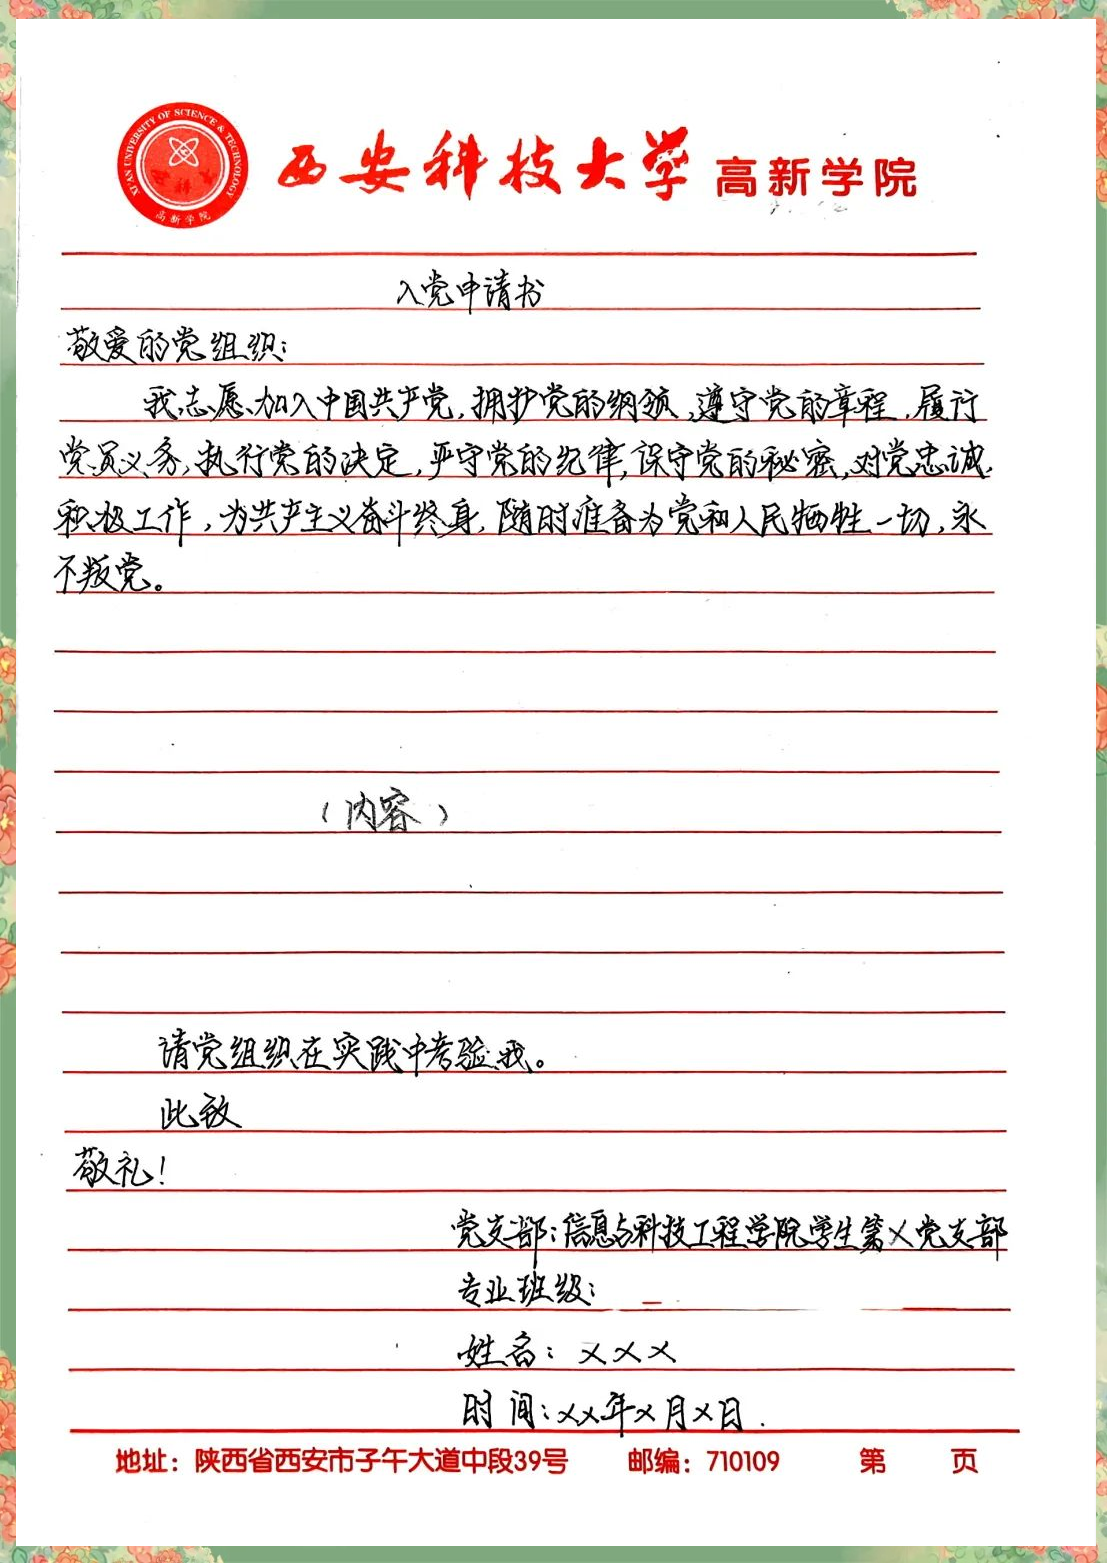 XI'AN UNIVERSITY OF SCIENCE & TECHNOLOGY
高新学院
西安科技大学 高新学院
入党申请书
敬爱的党组织：
我志愿加入中国共产党，拥护党的纲领，遵守党的章程，履行
党员义务，执行党的决定，严守党的纪律，保守党的秘密，对党忠诚，
积极工作，为共产主义奋斗终身，随时准备为党和人民牺牲一切，永
不叛党。
（内容）
请党组织在实践中考验我。
此致
敬礼！
党支部：信息与科技工程学院学生第X党支部
专业班级：
姓名：XXX
时间：XX年X月X日.
地址：陕西省西安市子午大道中段39号 邮编：710109 第 页